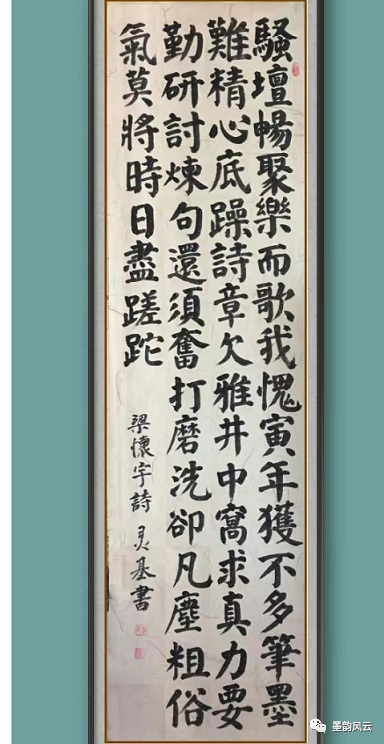 騷壇暢聚樂而歌我愧寅年獲不多筆墨
難精心底躁詩章欠雅井中窩求真力要
勤研討煉句還須奮打磨洗卻凡塵粗俗
氣莫將時日盡蹉跎
梁懷宇詩 灵基書
墨韵风云